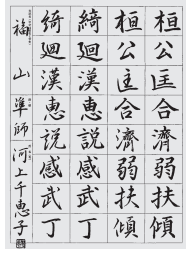 桓公匡合濟弱扶傾
桓公匡合濟弱扶傾
綺廻漢恵説感武丁
綺廻漢恵説感武丁
福山 準師 河上千恵子